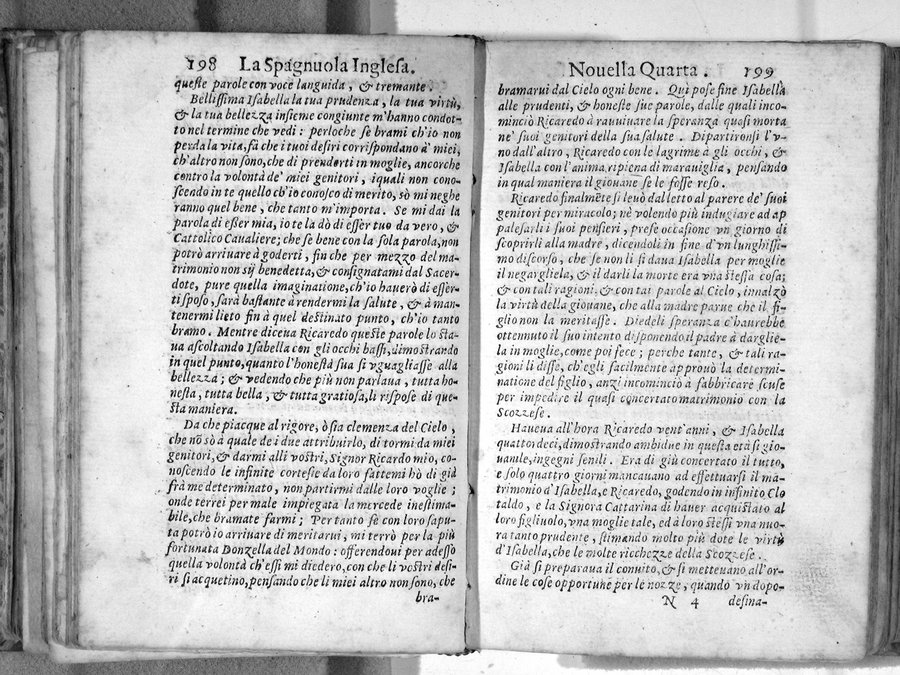 198 La Spagnuola Inglesa.
queste parole con voce languida, & tremante.
Bellissima Isabella la tua prudenza, la tua virtù,
& la tua bellezza insieme congiunte m'hanno condot-
to nel termine che vedi: perloche se brami ch'io non
perda la vita, fà che i tuoi desiri corrispondano à miei,
ch'altro non sono, che di prenderti in moglie, ancorche
contro la volontà de' miei genitori, i quali non cono-
scendo in te quello ch'io conosco di merito, sò mi neghe
ranno quel bene, che tanto m'importa. Se mi dai la
parola di esser mia, io te la dò di esser tuo da vero, &
Cattolico Caualiere; che se bene con la sola parola, non
potrò arriuare à goderti, fin che per mezzo del ma-
trimonio non sij benedetta, & consignatami dal Sacer-
dote, pure quella imaginatione, ch'io hauerò di esser-
ti sposo, sarà bastante à rendermi la salute, & à man-
tenermi lieto fin à quel destinato punto, ch'io tanto
bramo. Mentre diceua Ricaredo queste parole lo sta-
ua ascoltando Isabella con gli occhi bassi, dimostrando
in quel punto, quanto l'honestà sua si vguagliasse alla
bellezza; & vedendo che più non parlaua, tutta ho-
nesta, tutta bella, & tutta gratiosa, li rispose di que-
sta maniera.
Da che piacque al rigore, ò sia clemenza del Cielo,
che nõ sò à quale de i due attribuirlo, di tormi da miei
genitori, & darmi alli vostri, Signor Ricardo mio, co-
noscendo le infinite cortesie da loro fattemi hò di già
frà me determinato, non partirmi dalle loro voglie;
onde terrei per male impiegata la mercede inestima-
bile, che bramate farmi; Per tanto se con loro sapu-
ta potrò io arriuare di meritarui, mi terrò per la più
fortunata Donzella del Mondo: offerendoui per adesso
quella volontà ch'essi mi diedero, con che li vostri desi-
ri si acquetino, pensando che li miei altro non sono, che
bra-
Nouella Quarta. 199
bramarui dal Cielo ogni bene. Qui pose fine Isabella
alle prudenti, & honeste sue parole, dalle quali inco-
minciò Ricaredo à rauuiuare la speranza quasi morta
ne' suoi genitori della sua salute. Dipartironsi l'v-
no dall'altro, Ricaredo con le lagrime à gli occhi, &
Isabella con l'anima ripiena di marauiglia, pensando
in qual maniera il giouane se le fosse reso.
Ricaredo finalmẽte si leuò dal letto al parere de' suoi
genitori per miracolo; nè volendo più indugiare ad ap
palesarli i suoi pensieri, prese occasione vn giorno di
scoprirli alla madre, dicendoli in fine d'vn lunghissi-
mo discorso, che se non li si daua Isabella per moglie
il negargliela, & il darli la morte era vna stessa cosa;
& con tali ragioni, & con tai parole al Cielo, innalzò
la virtù della giouane, che alla madre parue che il fi-
glio non la meritasse. Diedeli speranza c'haurebbe
ottennuto il suo intento disponendo il padre à darglie-
la in moglie, come poi fece; perche tante, & tali ra-
gioni li disse, ch'egli facilmente approuò la determi-
natione del figlio, anzi incominciò à fabbricare scuse
per impedire il quasi concertato matrimonio con la
Scozzese.
Haueua all'hora Ricaredo vent'anni, & Isabella
quattordeci, dimostrando ambidue in questa età sì gio-
uanile, ingegni senili. Era di già concertato il tutto,
e solo quattro giorni mancauano ad effettuarsi il ma-
trimonio d'Isabella, e Ricaredo, godendo in infinito Clo
taldo, e la Signora Cattarina di hauer acquistato al
loro figliuolo, vna moglie tale, ed à loro stessi vna nuo-
ra tanto prudente, stimando molto più dote le virtù
d'Isabella, che le molte ricchezze della Scozzese.
Già si preparaua il conuito, & si metteuano all'or-
dine le cose opportune per le nozze, quando vn dopo-
N 4 desina-